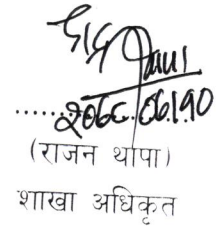 २०६८.०६।१०
(राजन थापा)
शाखा अधिकृत